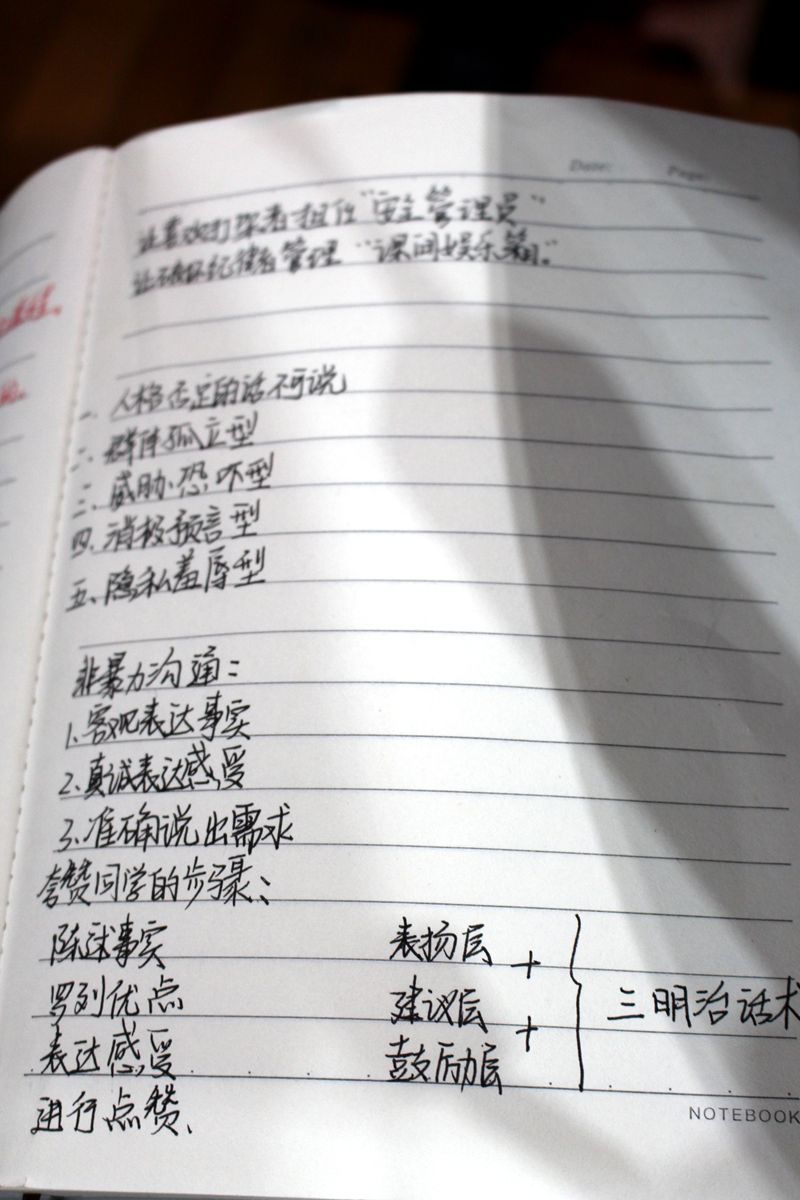 Date: Page:
让喜欢打架者担任"安全管理员"
让不遵守纪律者管理"课间娱乐箱。"
一、人格否定的话不可说
二、群体孤立型
三、威胁恐吓型
四、消极预言型
五、隐私羞辱型
非暴力沟通:
1.客观表达事实
2.真诚表达感受
3.准确说出需求
夸赞同学的步骤:
陈述事实 表扬层 +
罗列优点 建议层 + 三明治话术
表达感受 鼓励层
进行点赞、
NOTEBOOK